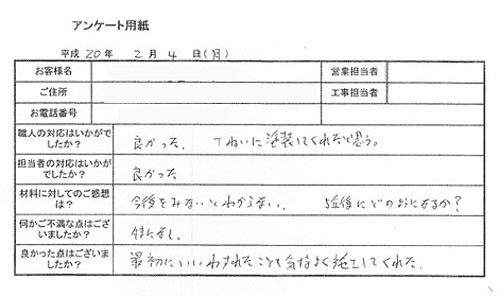 アンケート用紙
平成 20 年 2 月 4 日(月)
お客様名 営業担当者
ご住所 工事担当者
お電話番号
職人の対応はいかがでしたか? 良かった、 丁ねいに塗装してくれたと思う。
担当者の対応はいかがでしたか? 良かった
材料に対してのご感想は? 今後をみないとわからない、 5年後にどのようになるか?
何かご不満な点はございましたか? 特になし、
良かった点はございましたか? 最初にいいわすれたことも気持よく施工してくれた。